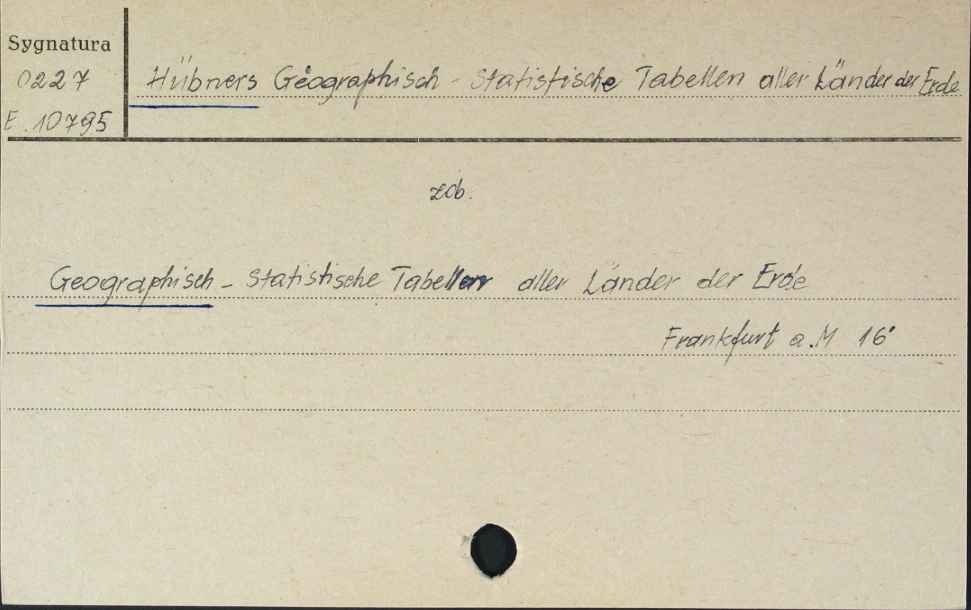 Sygnatura
0227
E.10795
Hübners Geographisch - Statistische Tabellen aller Länder der Erde
zob.
Geographisch - Statistische Tabellen aller Länder der Erde
Frankfurt a.M 16°